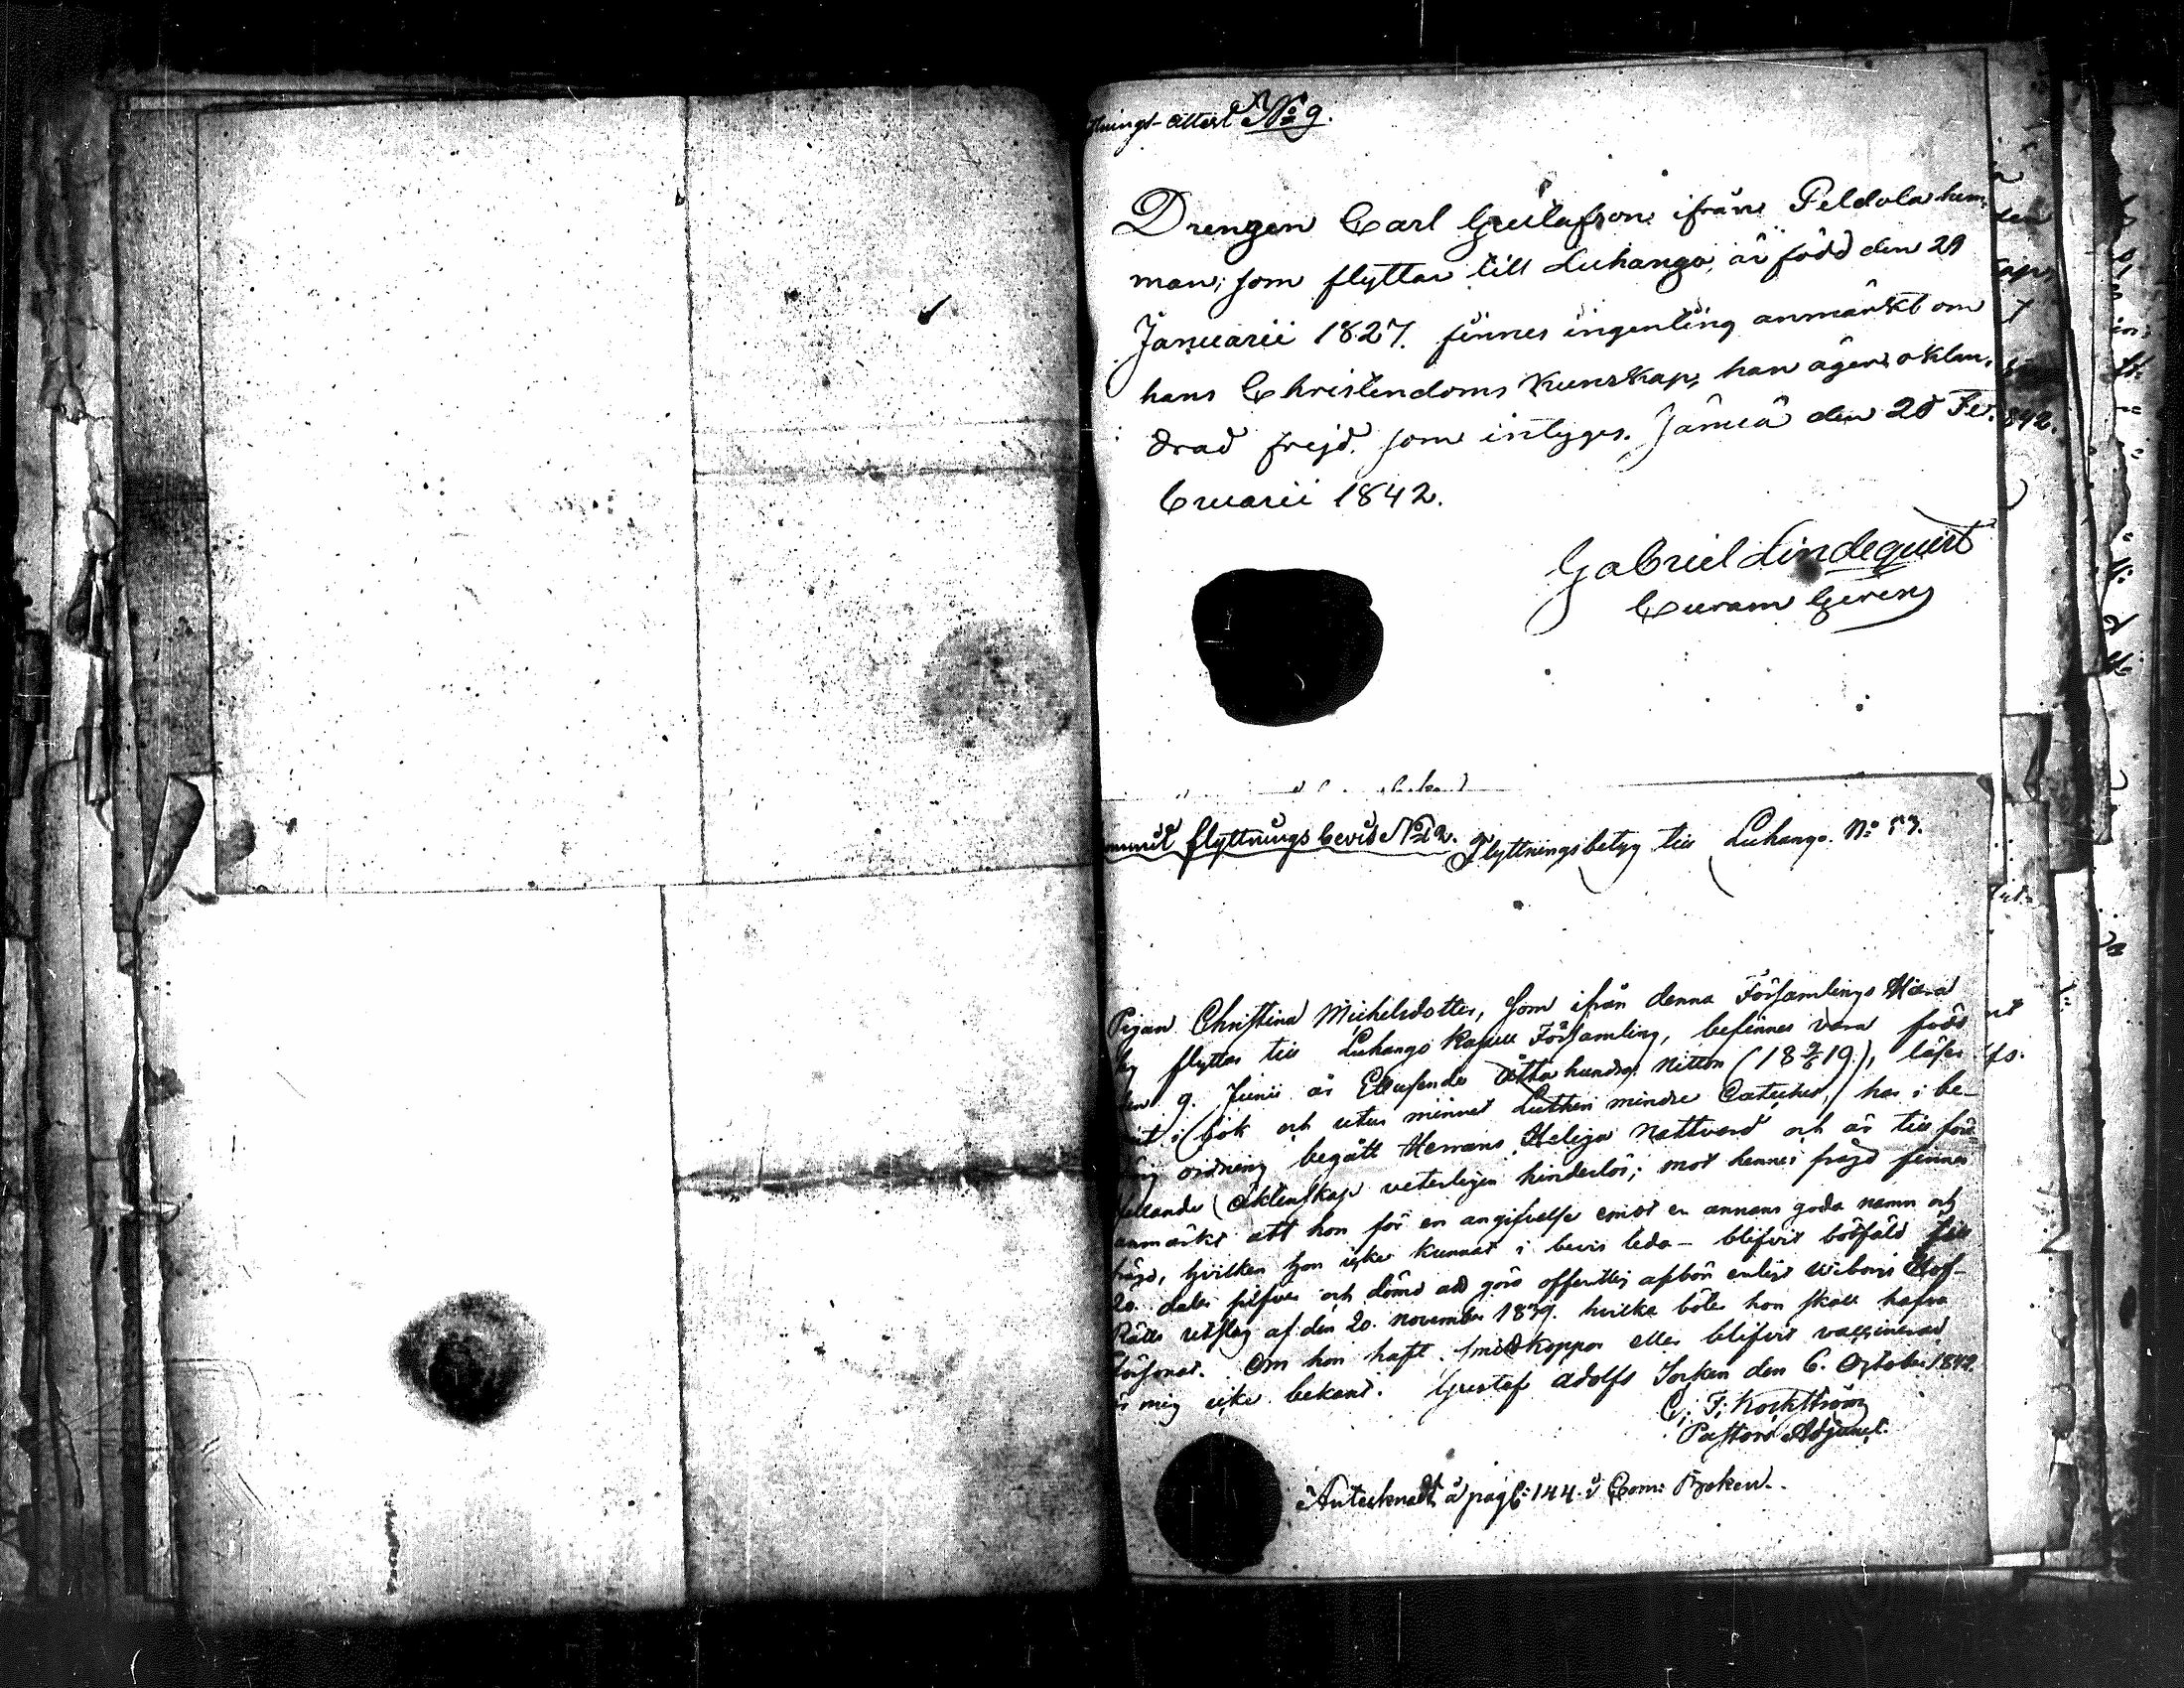 ttnings-attest No 9.
Drengen Carl Gustafson ifrån Peldola hem,
man, som flyttar till Luhango, är född den 29
Januarii 1827. finnes ingenting anmärkt om
hans Christendoms kunskap, han äger oklan,
drad frejd. som intyges. Jämsä den 28 Fe,
bruarii 1842.
Gabriel Lindequist
Curam Gerens
842.
flyttnings bevis No 12. Flyttningsbetyg till Luhango. No 53.
Pigan Christina Michelsdotter, som ifrån denna Församlings
flyttar till Luhango Kapell Församling, befinnes vara född
den 9. Junii år Ettusende Åttahundrade Nitton (18 9/6 19), läser
i bok och utur minnet Lutheri mindre Cateches, har i be-
ordning begått Herrans Heliga Nattvard och är till före-
ktenskap veterligen hinderlös; mot hennes fräjd finnes
anmärkt att hon för en angifvelse emot en annans goda namn och
fräjd, hvilken hon icke kunnat i bevis leda – blifvit bötfäld till
20. daler silfver och dömd att göra offentlig afbön enligt Wiborgs Hof-
Rätts utslag af den 20. november 1839. hvilka böter hon skall hafva
försonat. Om hon haft smittkoppor eller blifvit vaccinerad
är mig icke bekant. Gustaf Adolfs Socken den 6. October 1842.
C. F. Kockström
Pastors Adjunct.
Antecknadt å pag: 144. i Com: Boken.